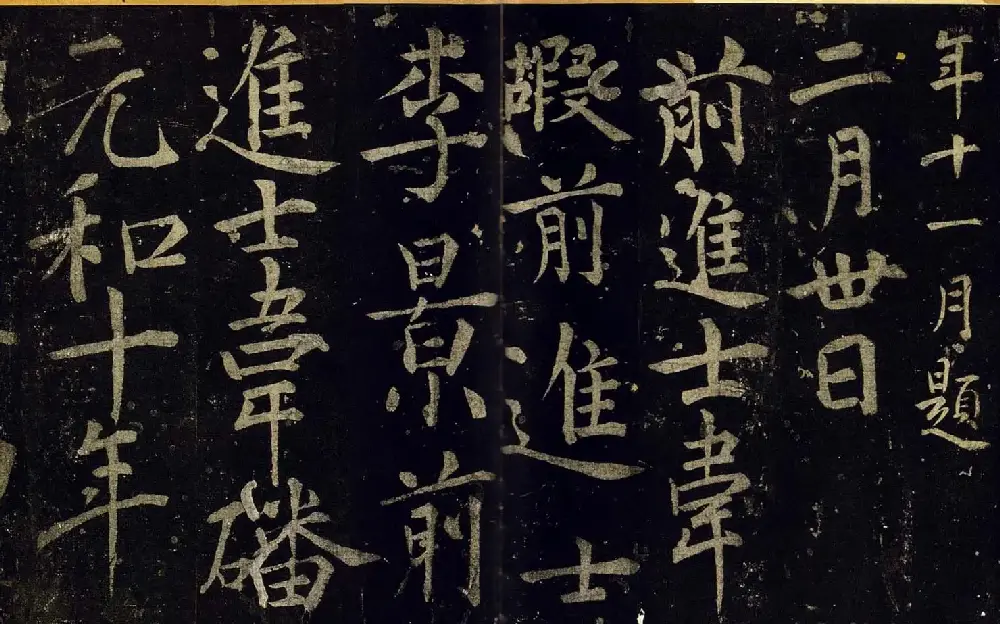 年十一月題
二月丗日
前進士韋
嘏前進士
李景前
進士韋磻
元和十年